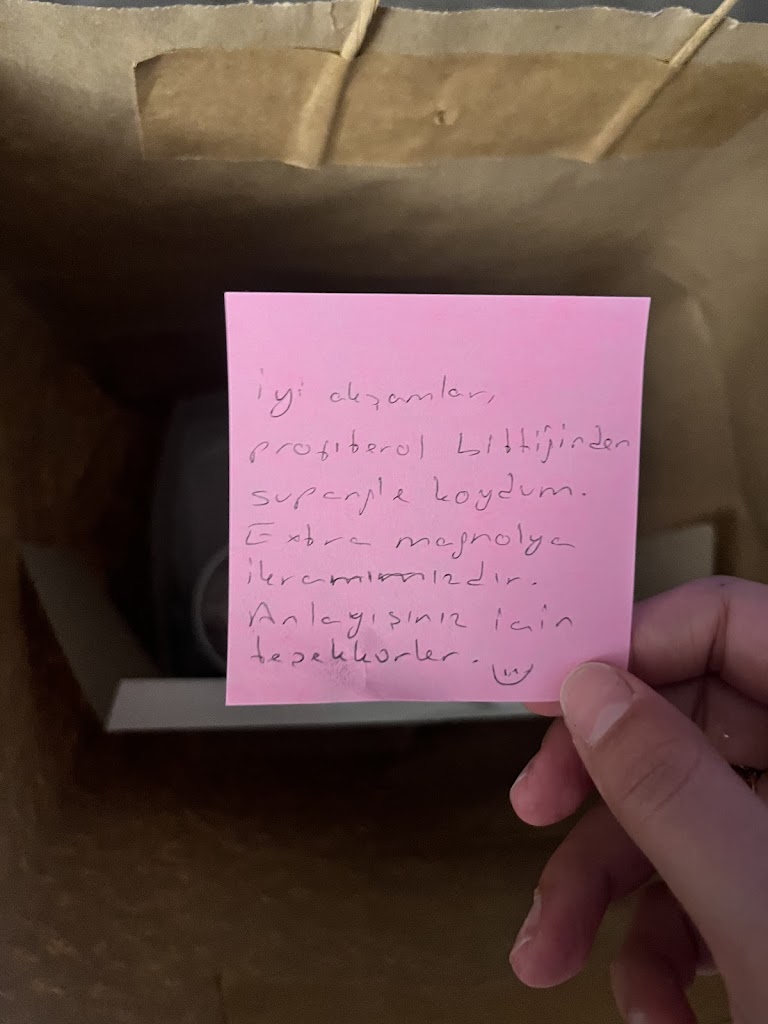 iyi akşamlar,
profiterol bittiğinden
supangle koydum.
Extra magnolya
ikramımızdır.
Anlayışınız için
teşekkürler.